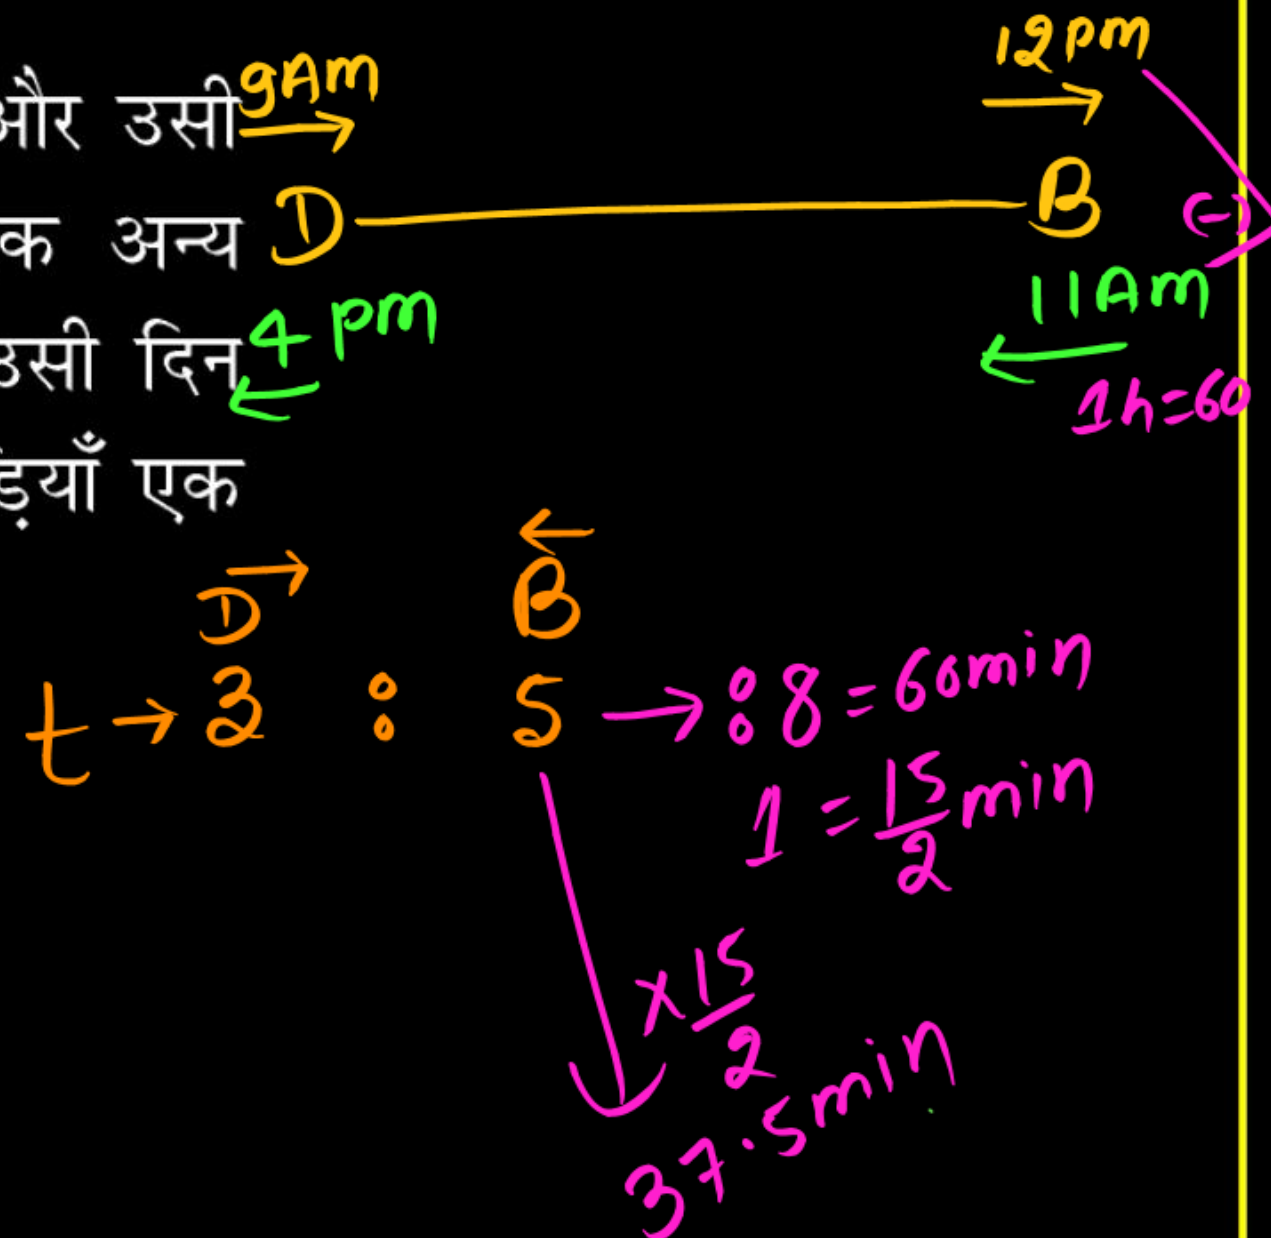 और उसी 9Am 12pm
क अन्य D B (-)
4 pm 11Am
उसी दिन
1h=60
ड़ियाँ एक
D B
t → 3 : 5 → : 8 = 60min
1 = 15/2 min
× 15/2
37.5min